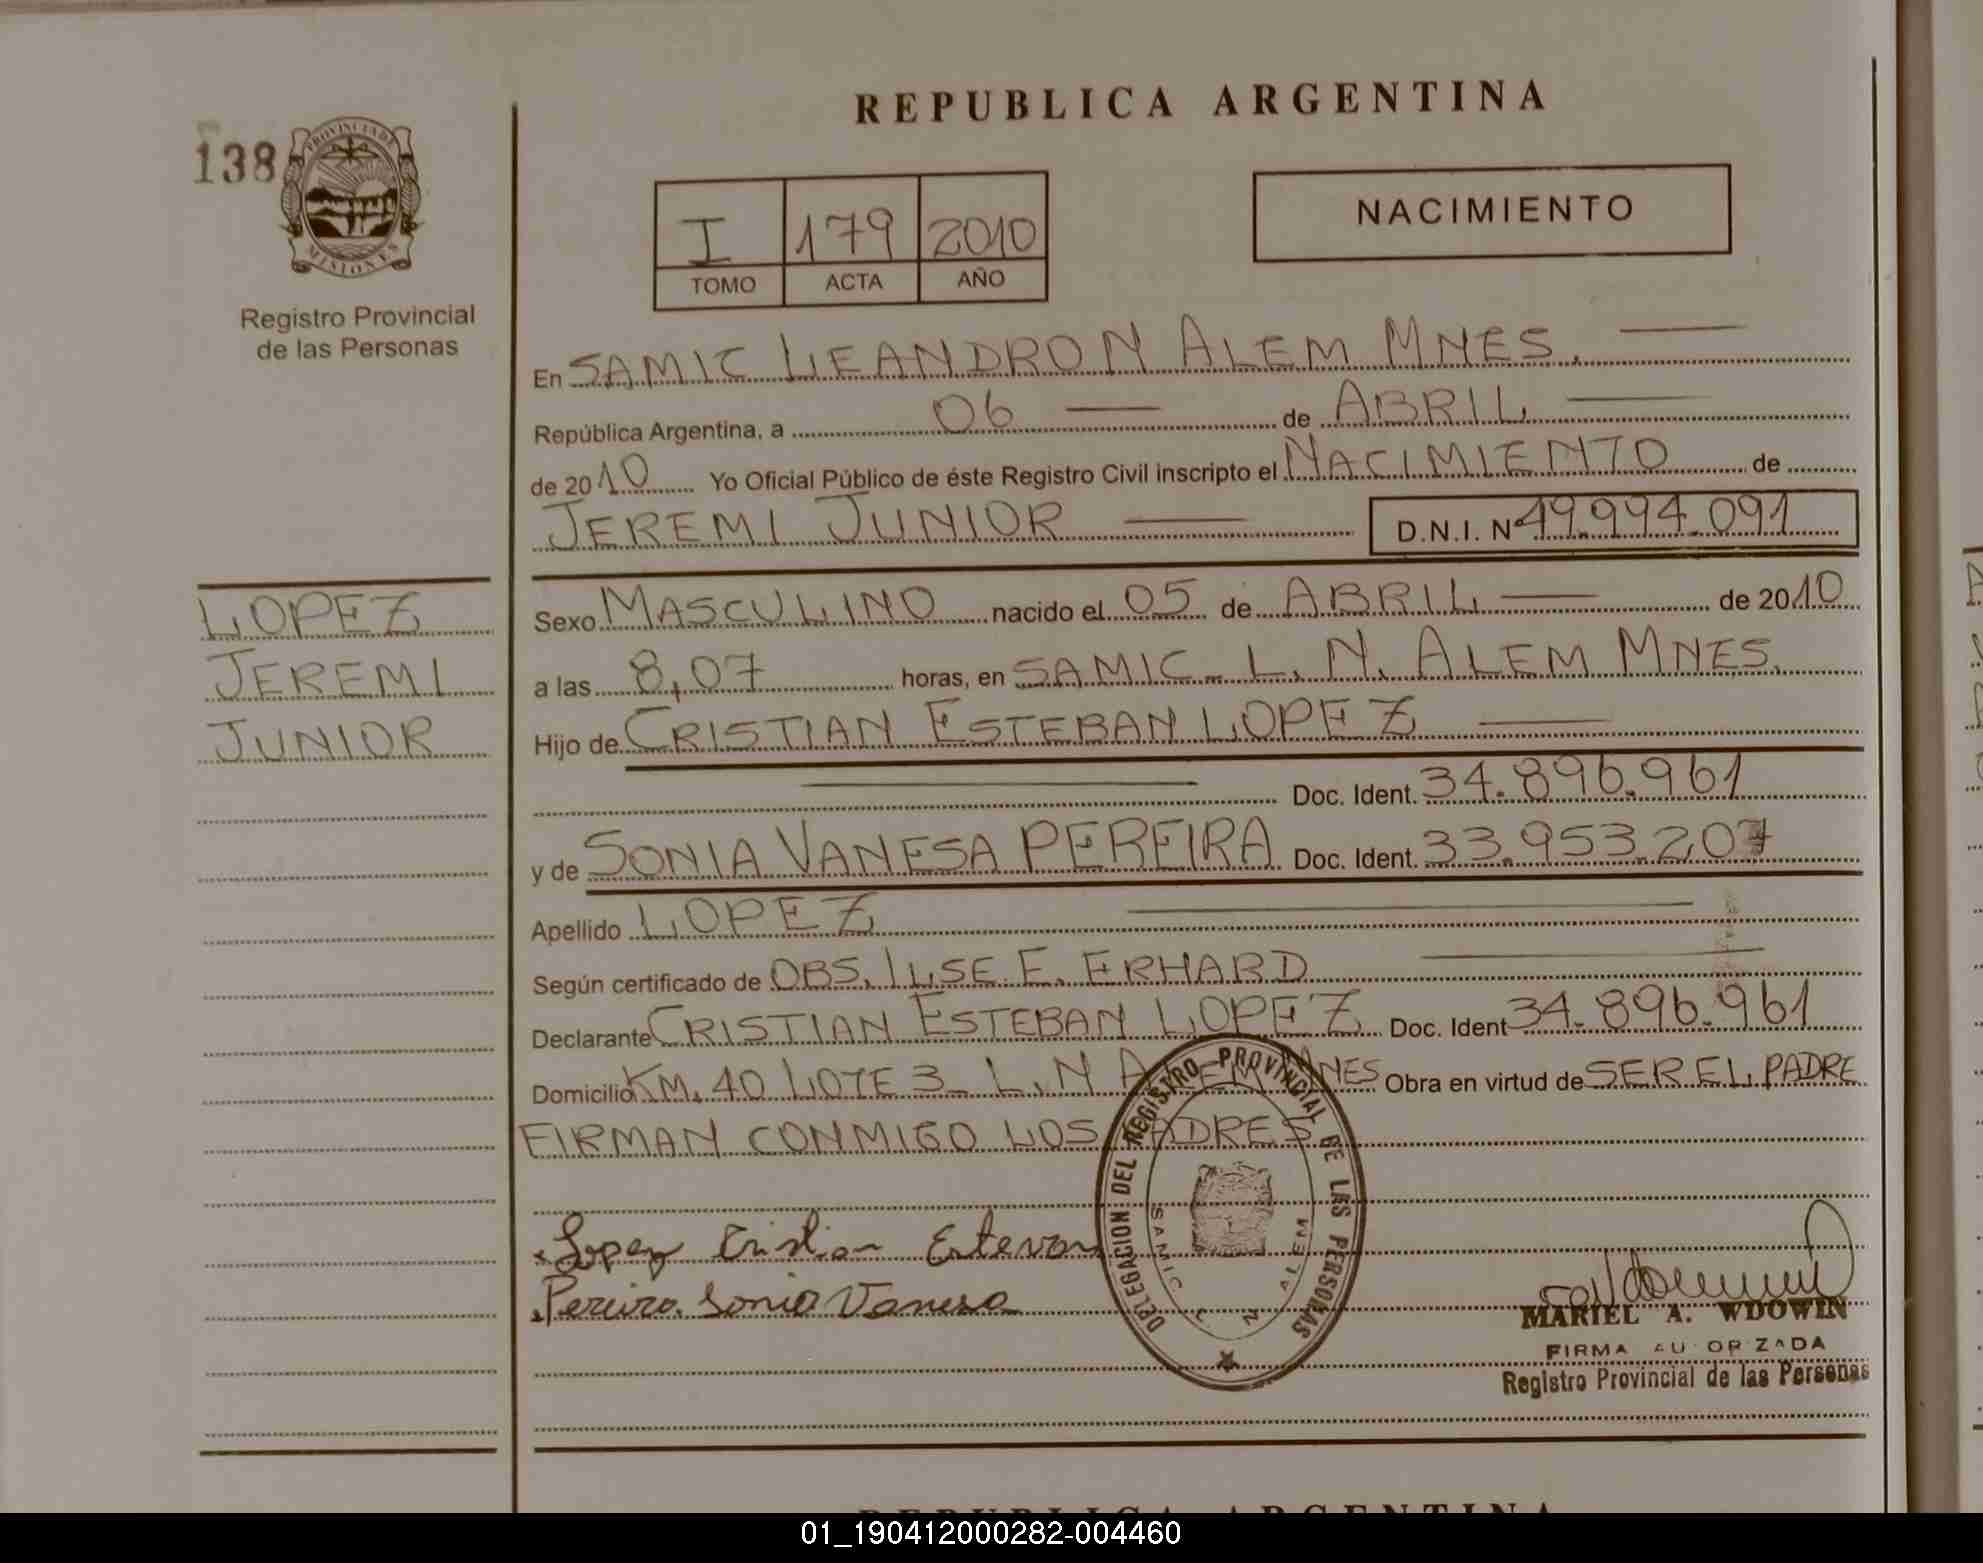 REPUBLICA ARGENTINA
138
PROVINCIA DE
MISIONES
Registro Provincial
de las Personas
I 179 2010
TOMO ACTA AÑO
NACIMIENTO
En SAMIC LEANDRO N ALEM MNES.
República Argentina, a 06 de ABRIL
de 2010 Yo Oficial Público de éste Registro Civil inscripto el NACIMIENTO de
JEREMI JUNIOR D.N.I. Nº 49.994.091
LOPEZ
JEREMI
JUNIOR
Sexo MASCULINO nacido el 05 de ABRIL de 2010
a las 8,07 horas, en SAMIC L. N. ALEM MNES.
Hijo de CRISTIAN ESTEBAN LOPEZ
Doc. Ident. 34.896.961
y de SONIA VANESA PEREIRA Doc. Ident. 33.953.207
Apellido LOPEZ
Según certificado de OBS. ILSE E. ERHARD
Declarante CRISTIAN ESTEBAN LOPEZ Doc. Ident 34.896.961
Domicilio KM. 40 LOTE 3 L.N ALEM MNES Obra en virtud de SER EL PADRE
FIRMAN CONMIGO LOS PADRES
DELEGACION DEL REGISTRO PROVINCIAL DE LAS PERSONAS
SAMIC L N ALEM
Lopez Cristian Estevan
Pereira Sonia Vanesa
MARIEL A. WDOWIN
FIRMA AUTORIZADA
Registro Provincial de las Personas
REPUBLICA ARGENTINA
01_190412000282-004460